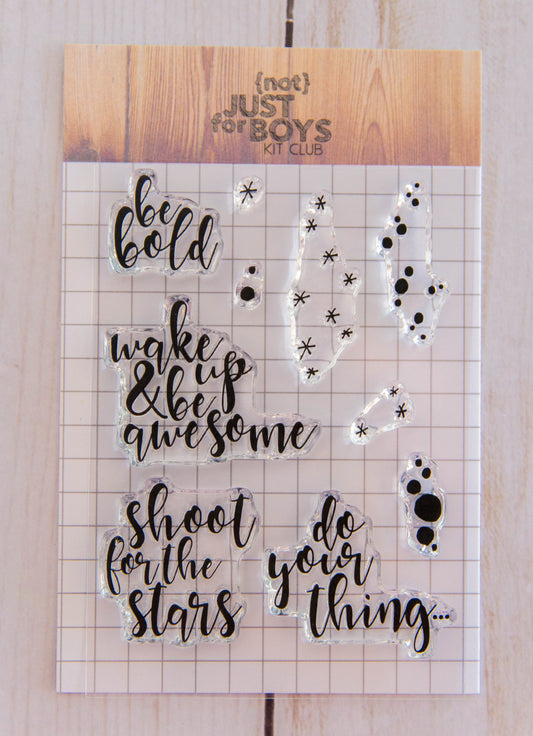 {not}
JUST
for BOYS
KIT CLUB
be
bold
wake
up
&be
awesome
shoot
for the
stars
do
your
thing...